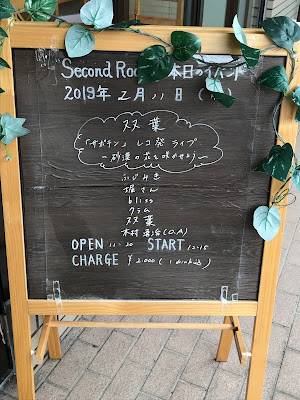 Second Roo 本日のイベント
2019年 2月11日 (
双葉
「サボテン」レコ発ライブ
～砂漠の花を咲かせよう～
ふじゆき
堀さん
bliss
クラム
双葉
木村 (O.A)
OPEN 11:30 START 12:15
CHARGE ¥2,000 (1 drink込)